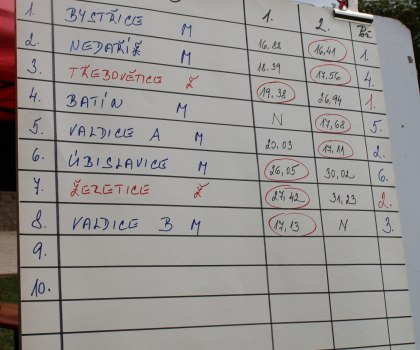 1. 2. Poř.
1. BYSTŘICE M 16,88 16,41 1.
2. NEDAŘÍŽ M 18.39 17,56 4.
3. TŘEBOVĚTICE Ž 19,38 26,94 1.
4. BATÍN M N 17,68 5.
5. VALDICE A M 20,03 17,11 2.
6. ÚBISLAVICE M 26,05 30,02 6.
7. ŽERETICE Ž 27,42 31,23 2.
8. VALDICE B M 17,13 N 3.
9.
10.